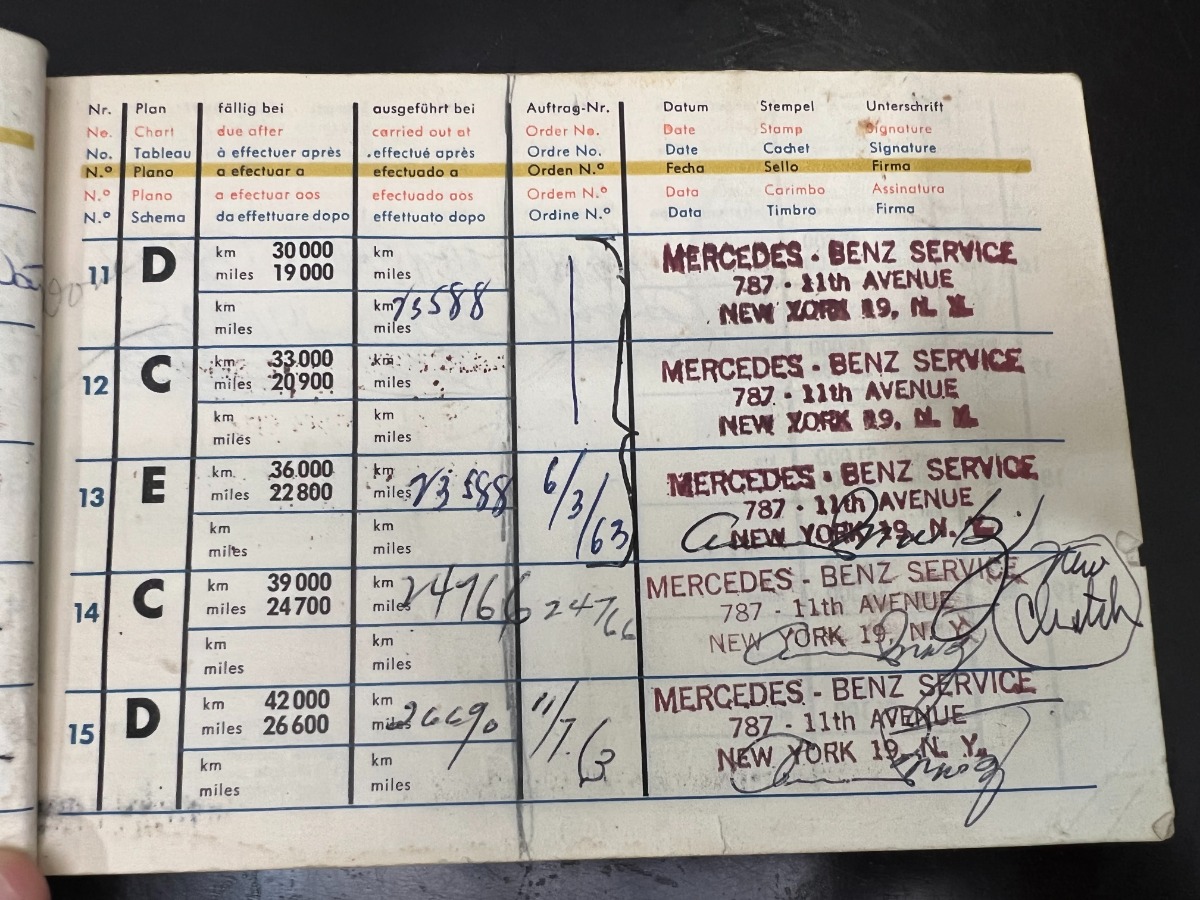 Nr. Plan fällig bei ausgeführt bei Auftrag-Nr. Datum Stempel Unterschrift
No. Chart due after carried out at Order No. Date Stamp Signature
No. Tableau à effectuer après effectué après Ordre No. Date Cachet Signature
N.º Plano a efectuar a efectuado a Orden N.º Fecha Sello Firma
N.º Plano a efectuar aos efectuado aos Ordem N.º Data Carimbo Assinatura
N.º Schema da effettuare dopo effettuato dopo Ordine N.º Data Timbro Firma
11 D km 30 000 km MERCEDES - BENZ SERVICE
miles 19 000 miles 787 - 11th AVENUE
km km 23588 NEW YORK 19, N. Y.
miles miles
12 C km 33 000 km MERCEDES - BENZ SERVICE
miles 20 900 miles 787 - 11th AVENUE
km km NEW YORK 19, N. Y.
miles miles
13 E km 36 000 km 6/3/63 MERCEDES - BENZ SERVICE
miles 22 800 miles 23588 787 - 11th AVENUE
km km NEW YORK 19, N. Y.
miles miles
14 C km 39 000 km MERCEDES - BENZ SERVICE New
miles 24 700 miles 24766 24766 787 - 11th AVENUE Clutch
km km NEW YORK 19, N. Y.
miles miles
15 D km 42 000 km MERCEDES - BENZ SERVICE
miles 26 600 miles 26690 11/7.63 787 - 11th AVENUE
km km NEW YORK 19, N. Y.
miles miles